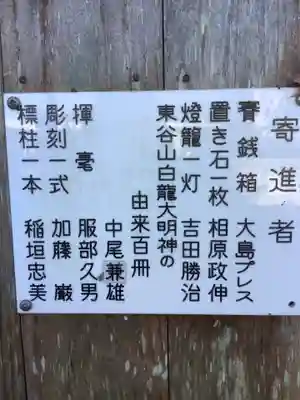 寄進者
賽銭箱 大島プレス
置き石一枚 相原政伸
燈籠一灯 吉田勝治
東谷山白龍大明神の
由来百冊
中尾兼雄
揮毫 服部久男
彫刻一式 加藤巌
標柱一本 稲垣忠美